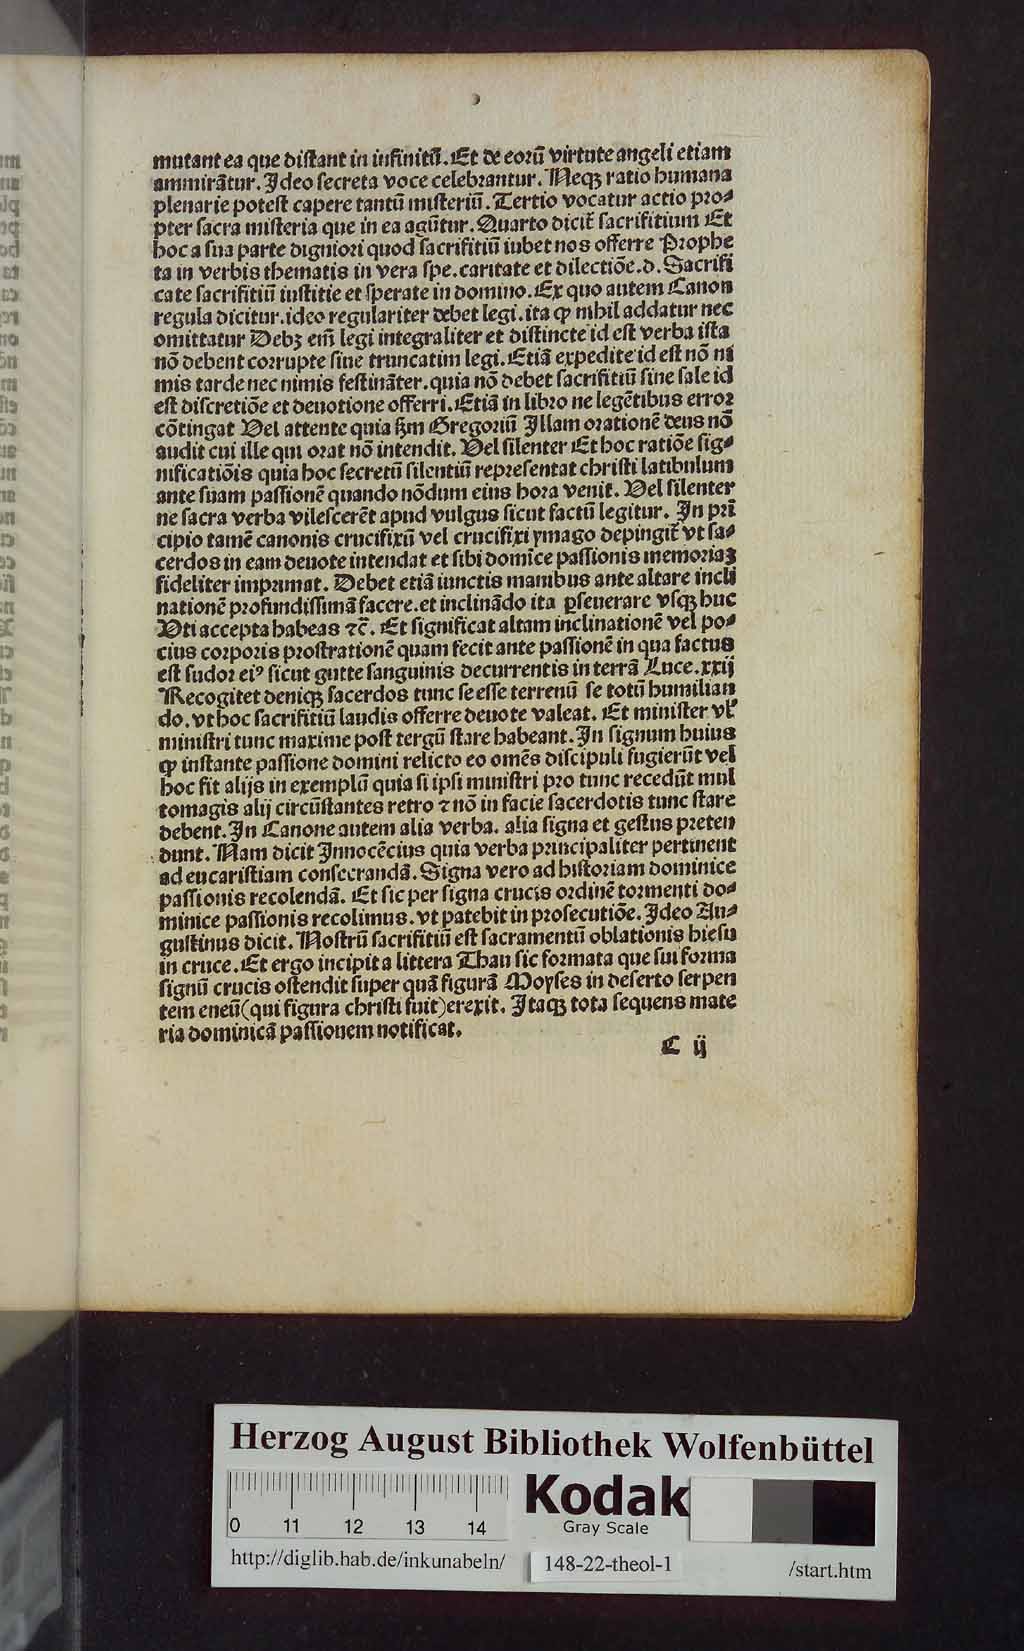 mutant ea que distant in infinitū. Et de eorū virtute angeli etiam
ammirātur. Ideo secreta voce celebrantur. Neqꝫ ratio humana
plenarie potest capere tantū misteriū. Tertio vocatur actio pro-
pter sacra misteria que in ea agūtur. Quarto dicit̄ sacrifitium Et
hoc a sua parte digniori quod sacrifitiū iubet nos offerre Prophe
ta in verbis thematis in vera spe. caritate et dilectiōe. d. Sacrifi
cate sacrifitiū iustitie et sperate in domino. Ex quo autem Canon
regula dicitur. ideo regulariter debet legi. ita ꝙ nihil addatur nec
omittatur Debꝫ em̄ legi integraliter et distincte id est verba ista
nō debent corrupte sine truncatim legi. Etiā expedite id est nō ni
mis tarde nec nimis festināter. quia nō debet sacrifitiū sine sale id
est discretiōe et deuotione offerri. Etiā in libro ne legētibus error
cōtingat Vel attente quia ẜm Gregoriū Illam orationē deus nō
audit cui ille qui orat nō intendit. Vel silenter Et hoc ratiōe sig-
nificatiōis quia hoc secretū silentiū representat christi latibulum
ante suam passionē quando nōdum eius hora venit. Vel silenter
ne sacra verba vilescerēt apud vulgus sicut factū legitur. In prī
cipio tamē canonis crucifixū vel crucifixi ymago depingit̄ vt sa-
cerdos in eam deuote intendat et sibi domĩce passionis memoriaꝫ
fideliter imprimat. Debet etiā iunctis manibus ante altare incli
nationē profundissimā facere. et inclinādo ita ꝑseuerare vsqꝫ huc
Vti accepta habeas ⁊c̄. Et significat altam inclinationē vel po-
cius corporis prostrationē quam fecit ante passionē in qua factus
est sudor eiꝰ sicut gutte sanguinis decurrentis in terrā Luce. xxij
Recogitet deniqꝫ sacerdos tunc se esse terrenū se totū humilian
do. vt hoc sacrifitiū laudis offerre deuote valeat. Et minister vl̓
ministri tunc maxime post tergū stare habeant. In signum huius
ꝙ instante passione domini relicto eo omēs discipuli fugierūt vel
hoc fit alijs in exemplū quia si ipsi ministri pro tunc recedūt mul
tomagis alij circūstantes retro ⁊ nō in facie sacerdotis tunc stare
debent. In Canone autem alia verba. alia signa et gestus preten
dunt. Nam dicit Innocēcius quia verba principaliter pertinent
ad eucaristiam consecrandā. Signa vero ad historiam dominice
passionis recolendā. Et sic per signa crucis ordinē tormenti do-
minice passionis recolimus. vt patebit in prosecutiōe. Ideo Au-
gustinus dicit. Nostrū sacrifitiū est sacramentū oblationis hiesu
in cruce. Et ergo incipit a littera Thau sic formata que sui forma
signū crucis ostendit super quā figurā Moyses in deserto serpen
tem eneū (qui figura christi fuit) erexit. Itaqꝫ tota sequens mate
ria dominicā passionem notificat.
C ij
Herzog August Bibliothek Wolfenbüttel
0 11 12 13 14
Kodak
Gray Scale
http://diglib.hab.de/inkunabeln/ 148-22-theol-1 /start.htm